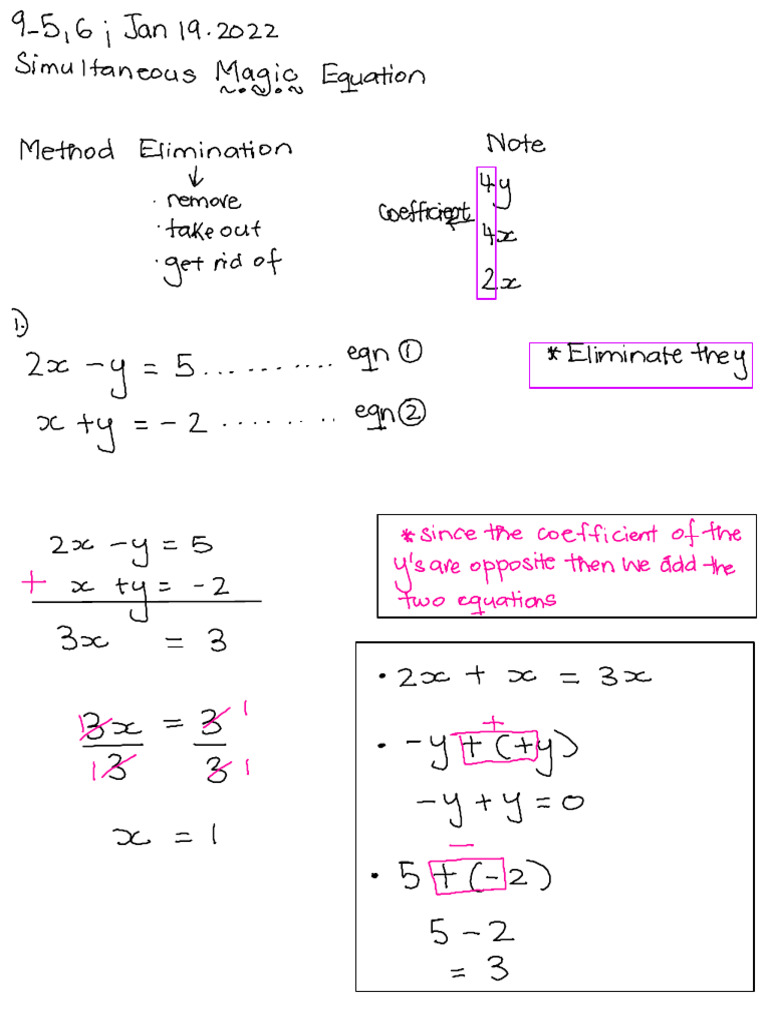 9-5,6 ; Jan 19.2022
Simultaneous Magic Equation
Method Elimination
↓
· remove
· take out
· get rid of
Note
coefficient
4y
4x
2x
1.)
2x - y = 5 .......... eqn ①
x + y = -2 ........ eqn ②
* Eliminate the y
2x - y = 5
+ x + y = -2
3x = 3
3x = 3
3 3
1 1
1 1
x = 1
* since the coefficient of the
y's are opposite then we add the
two equations
• 2x + x = 3x
+
• -y + (+y)
-y + y = 0
−
• 5 + (-2)
5 - 2
= 3